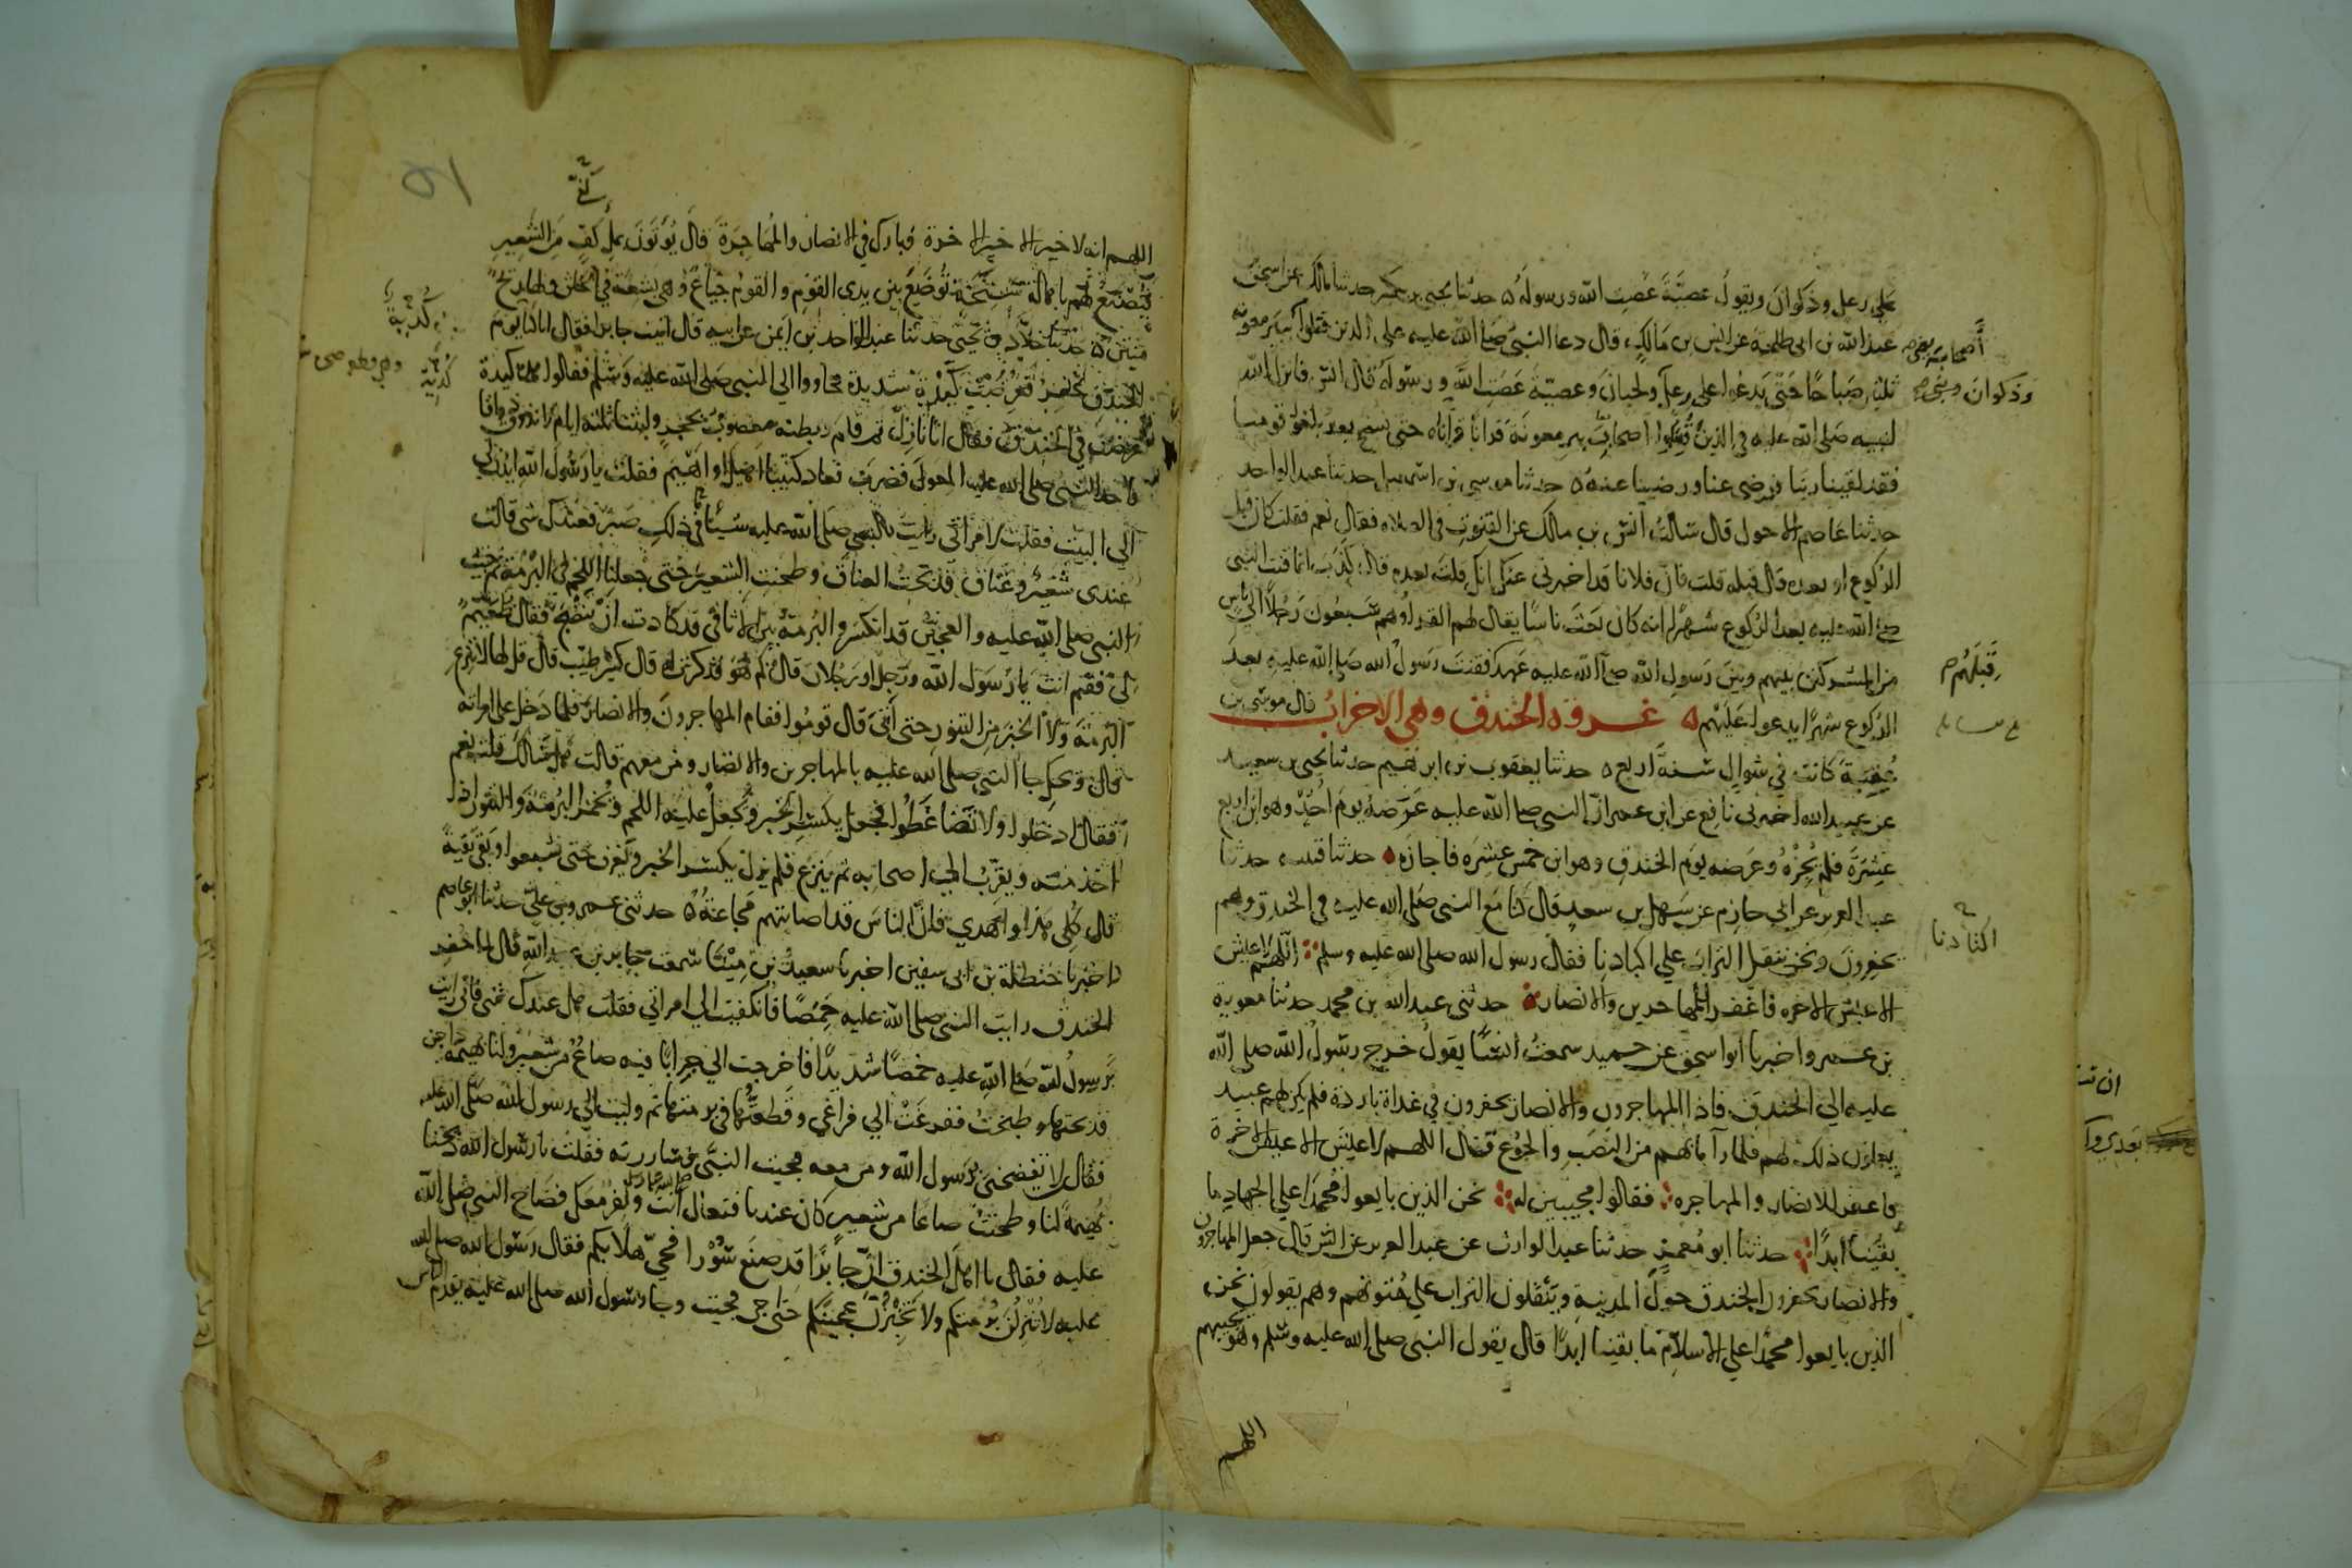 على رعل وذكوان ويقول عصية عصت الله ورسوله ه حدثنا يحيى بن بكير حدثنا مالك عن اسحق
عبد الله بن ابى طلحة عن انس بن مالك قال دعا النبى صلى الله عليه على الذين قتلوا ببير معونة
ثلثين صباحا حتى يدعوا على رعل ولحيان وعصية عصت الله ورسوله قال انس فانزل الله
لنبيه صلى الله عليه فى الذين قتلوا اصحاب بير معونة قرانا قراناه حتى نسخ بعد بلغوا قومنا
فقد لقينا ربنا فرضى عنا ورضينا عنه ه حدثنا موسى بن اسمعيل حدثنا عبد الواحد
حدثنا عاصم الاحول قال سالت انس بن مالك عن القنوت فى الصلاه فقال نعم فقلت كان قبل
الركوع او بعده قال قبله قلت فان فلانا قد اخبرنى عنك انك قلت بعده قال كذب انما قنت النبى
صلى الله عليه بعد الركوع شهرا انه كان بعث ناسا يقال لهم القراء وهم سبعون رجلا الى ناس
من المشركين بينهم وبين رسول الله صلى الله عليه عهد فقنت رسول الله صلى الله عليه بعد
الركوع شهرا يدعوا عليهم ه غزوة الخندق وهى الاحزاب قال موسى بن
عقبة كانت فى شوال سنة اربع ه حدثنا يعقوب بن ابرهيم حدثنا يحيى بن سعيد
عن عبيد الله اخبرنى نافع عن ابن عمر ان النبى صلى الله عليه عرضه يوم احد وهو ابن اربع
عشرة فلم يجزه وعرضه يوم الخندق وهو ابن خمس عشره فاجازه ه حدثنا قتيبه حدثنا
عبد العزيز عن ابى حازم عن سهل بن سعد قال كنا مع النبى صلى الله عليه فى الخندق وهم
يحفرون ونحن ننقل التراب على اكبادنا فقال رسول الله صلى الله عليه وسلم اللهم لا عيش
الا عيش الاخره فاغفر للمهاجرين والانصار ه حدثنى عبد الله بن محمد حدثنا معوية
بن عمرو اخبرنا ابو اسحق عن حميد سمعت انسا يقول خرج رسول الله صلى الله
عليه الى الخندق فاذا المهاجرون والانصار يحفرون فى غداة باردة فلم يكن لهم عبيد
يعملون ذلك لهم فلما راى ما بهم من النصب والجوع قال اللهم لا عيش الا عيش الاخرة
فاغفر للانصار والمهاجره فقالوا مجيبين له نحن الذين بايعوا محمدا على الجهاد ما
بقينا ابدا حدثنا ابو معمر حدثنا عبد الوارث عن عبد العزيز عن انس قال جعل المهاجرون
والانصار يحفرون الخندق حول المدينة وينقلون التراب على متونهم وهم يقولون نحن
الذين بايعوا محمدا على الاسلام ما بقينا ابدا قال يقول النبى صلى الله عليه وسلم وهو يجيبهم
اللهم
وذكوان
قبلهم
اكتادنا
اللهم انه لا خير الا خير الاخرة فبارك فى الانصار والمهاجرة قال يؤتون بملء كف من الشعير
فيصنع لهم باهالة سنخة توضع بين يدى القوم والقوم جياع وهى بشعة فى الحلق ولها ريح
منتن ه حدثنا خلاد بن يحيى حدثنا عبد الواحد بن ايمن عن ابيه قال اتيت جابرا فقال انا يوم
الخندق نحفر فعرضت كيدة شديدة فجاءوا الى النبى صلى الله عليه وسلم فقالوا هذه كيدة
عرضت فى الخندق فقال انا نازل ثم قام وبطنه معصوب بحجر ولبثنا ثلثة ايام لا نذوق ذواقا
فاخذ النبى صلى الله عليه المعول فضرب فعاد كثيبا اهيل او اهيم فقلت يا رسول الله ايذن لى
الى البيت فقلت لامراتى رايت بالنبى صلى الله عليه شيئا ما فى ذلك صبر فعندك شى قالت
عندى شعير وعناق فذبحت العناق وطحنت الشعير حتى جعلنا اللحم فى البرمة ثم جيت
النبى صلى الله عليه والعجين قد انكسر والبرمة بين الاثافى قد كادت ان تنضج فقال طعيم
لى فقم انت يا رسول الله ورجل او رجلان قال كم هو فذكرت له قال كثير طيب قال قل لها لا تنزع
البرمة ولا الخبز من التنور حتى اتى قال قوموا فقام المهاجرون والانصار فلما دخل على امراته
قال ويحك جا النبى صلى الله عليه بالمهاجرين والانصار ومن معهم قالت هل سالك قلت نعم
فقال ادخلوا ولا تضاغطوا فجعل يكسر الخبز ويجعل عليه اللحم ويخمر البرمة والتنور اذا
اخذ منه ويقرب الى اصحابه ثم ينزع فلم يزل يكسر الخبز ويغرف حتى شبعوا وبقى بقية
قال كلى هذا واهدى فان الناس قد اصابتهم مجاعة ه حدثنى عمرو بن على حدثنا ابو عاصم
اخبرنا حنظلة بن ابى سفين اخبرنا سعيد بن مينا سمعت جابر بن عبد الله قال لما حفر
الخندق رايت النبى صلى الله عليه خمصا فانكفيت الى امراتى فقلت هل عندك شى فانى رايت
برسول الله صلى الله عليه خمصا شديدا فاخرجت الى جرابا فيه صاع من شعير ولنا بهيمة داجن
فذبحتها وطحنت ففرغت الى فراغى وقطعتها فى برمتها ثم وليت الى رسول الله صلى الله عليه
فقال لا تفضحنى برسول الله ومن معه فجيت النبى فساررته فقلت يا رسول الله ذبحنا
بهيمة لنا وطحنت صاعا من شعير كان عندنا فتعال انت ونفر معك فصاح النبى صلى الله
عليه فقال يا اهل الخندق ان جابرا قد صنع سورا فحى هلا بكم فقال رسول الله صلى الله
عليه لا تنزلن برمتكم ولا تخبزن عجينكم حتى اجى فجيت وجا رسول الله صلى الله عليه يقدم الناس
كدية